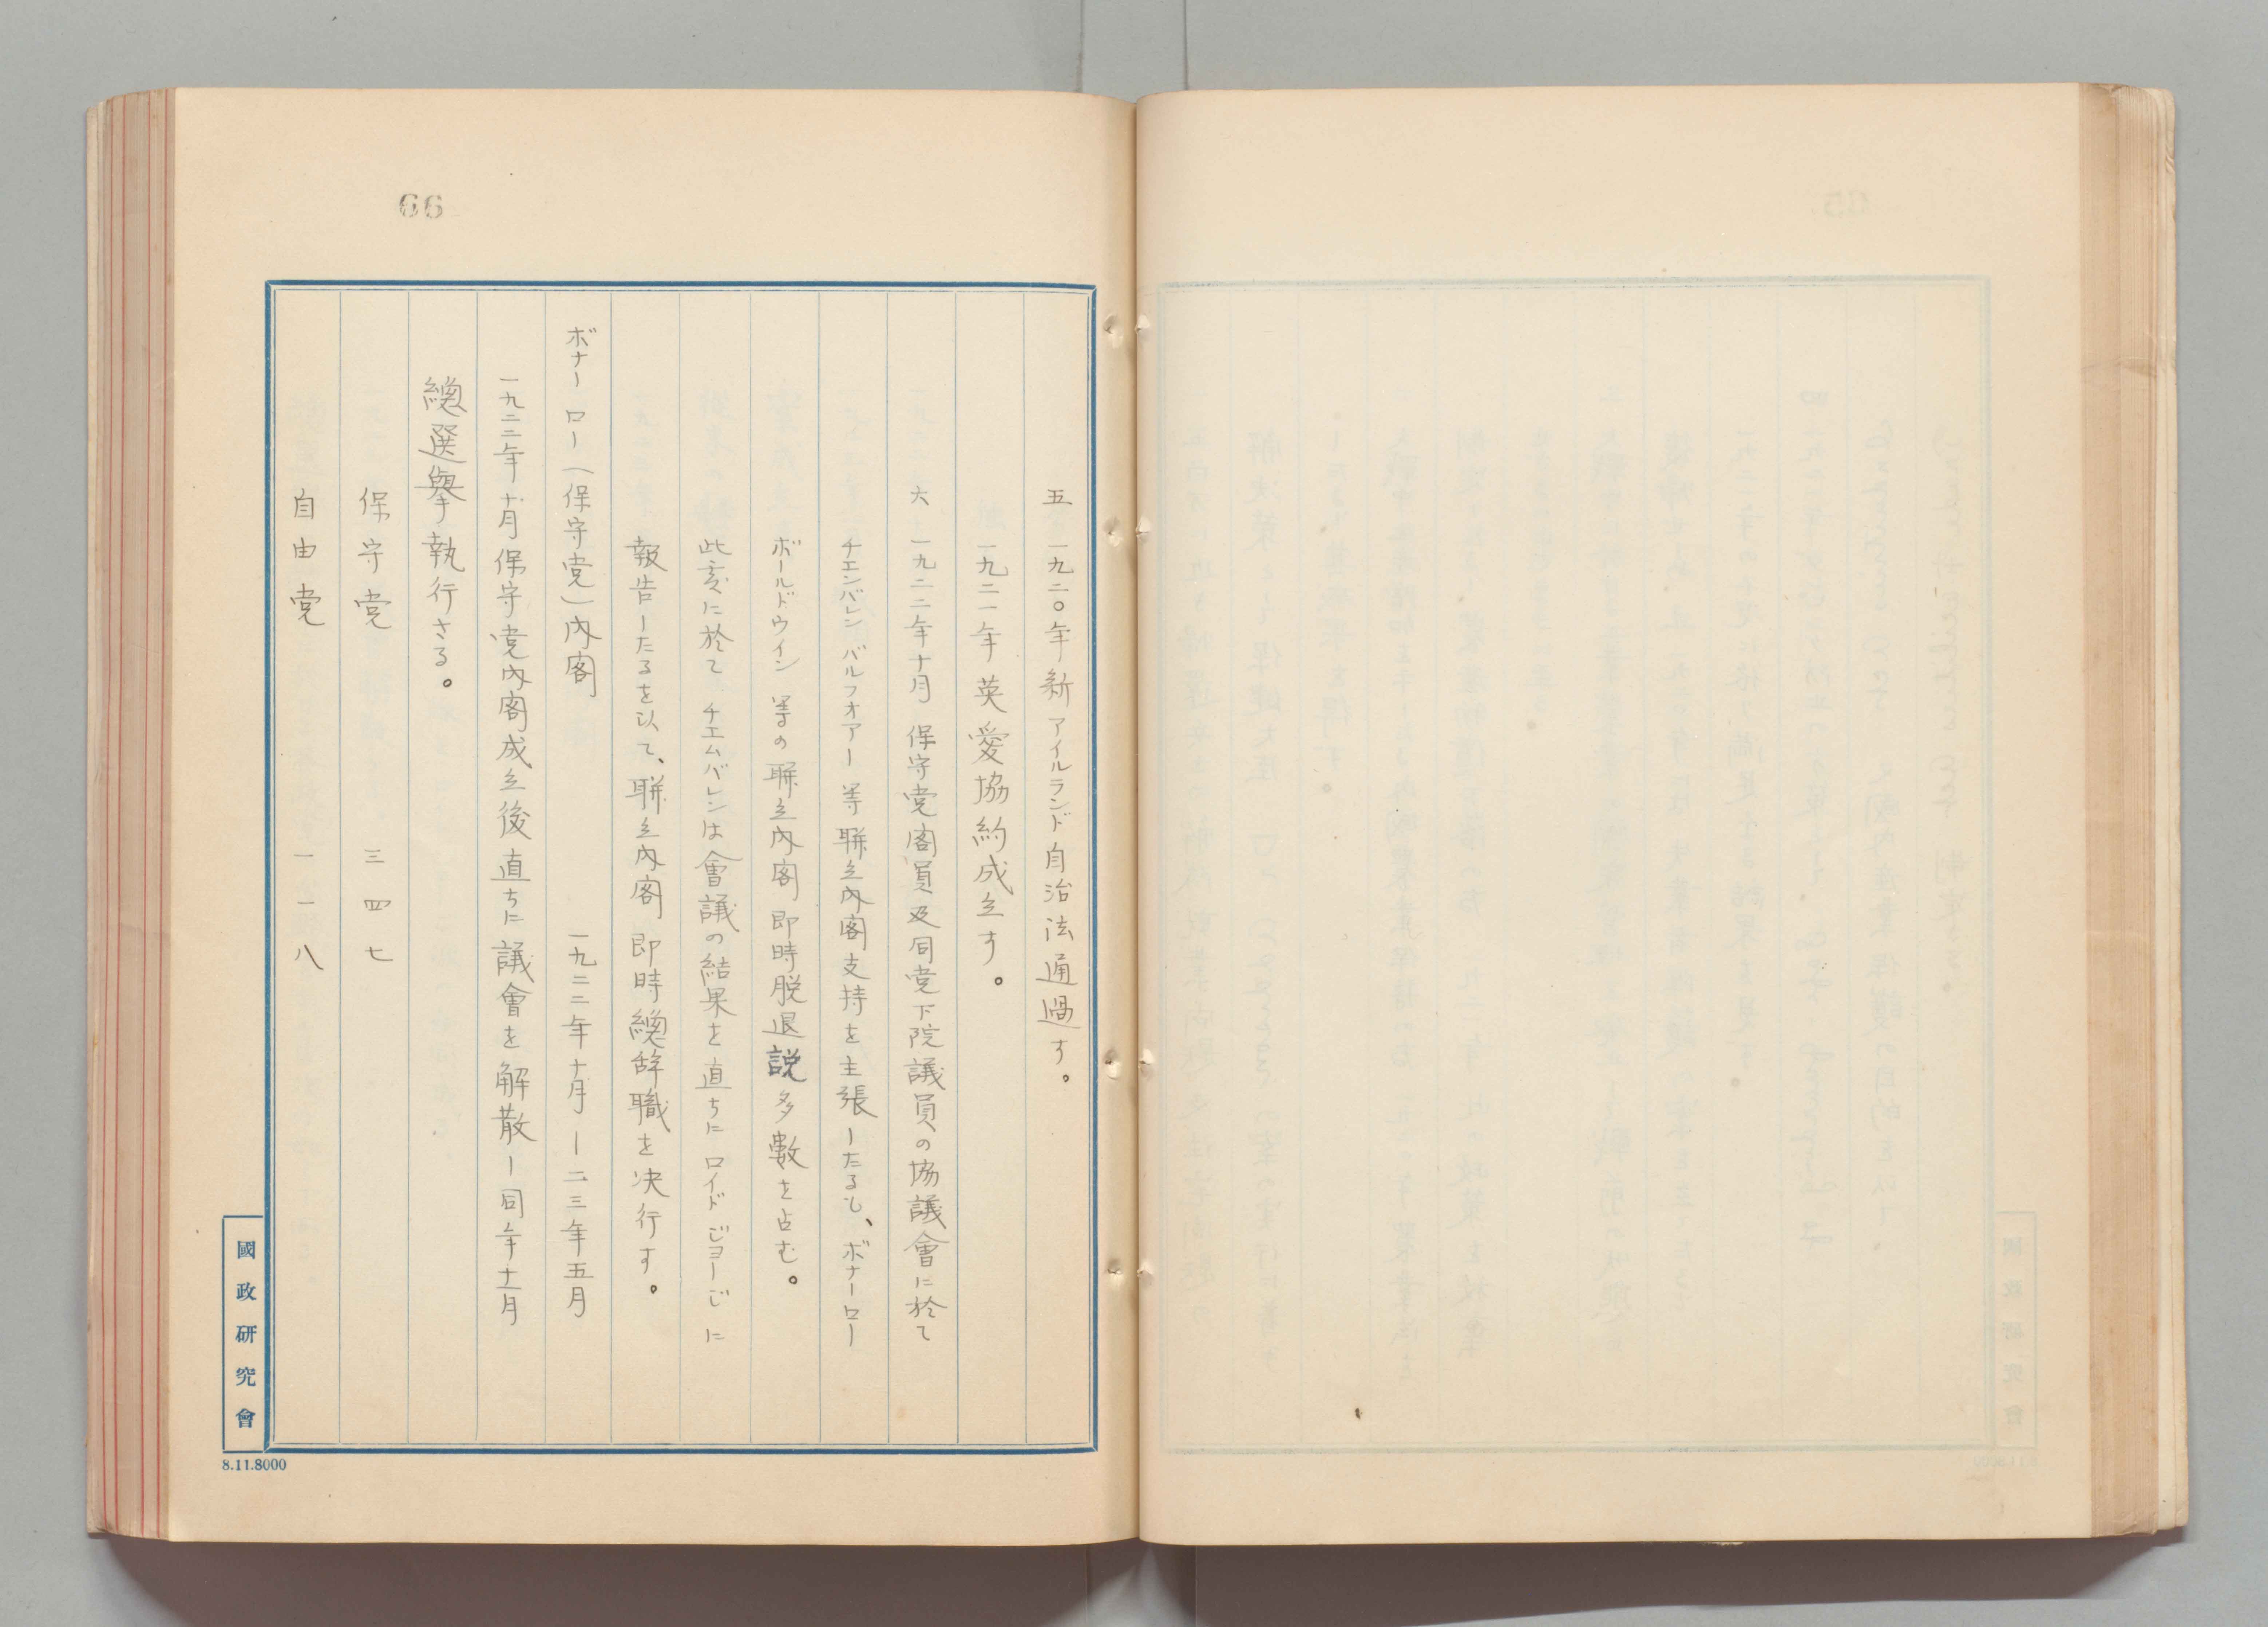 66
五 一九二〇年新アイルランド自治法通過す。
一九二一年英愛協約成立す。
六 一九二二年十月 保守党閣員及同党下院議員の協議會に於て
チエンバレン バルフオアー 等聯立内閣支持を主張したるも、ボナーロー
ボールドウイン 等の聯立内閣即時脱退説多數を占む。
此亥に於て チエムバレンは會議の結果を直ちに ロイドジョージに
報告したるを以て、聯立内閣即時總辞職を決行す。
ボナーロー(保守党)内閣 一九二二年十月ー二三年五月
一九二二年十月保守党内閣成立後直ちに議會を解散し同年十一月
總選擧執行さる。
保守党 三四七
自由党 一一八
國政研究會
8.11.8000